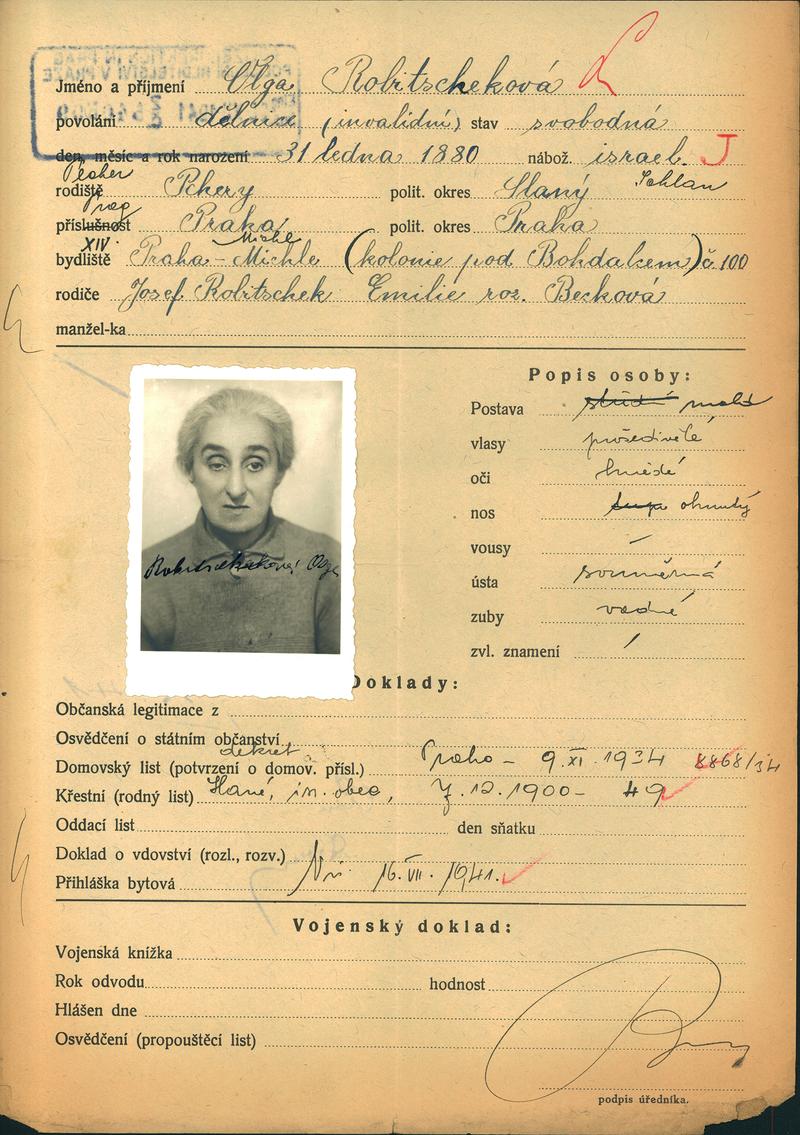 Jméno a příjmení Olga Robitscheková
povolání dělnice (invalidní) stav svobodná
den, měsíc a rok narození 31 ledna 1880 nábož. israel. J
Plcher
rodiště Pchery polit. okres Slaný Schlan
Prag
příslušnost Praha polit. okres Praha
XIV. Michle
bydliště Praha-Michle (kolonie pod Bohdalcem) č. 100
rodiče Josef Robitschek Emilie roz. Becková
manžel-ka
Popis osoby:
Postava malá
vlasy prošedivělé
oči hnědé
nos ohnutý
vousy –
ústa souměrná
zuby vadné
zvl. znamení /
Robitscheková Olga
Doklady:
Občanská legitimace z
Osvědčení o státním občanství
dekret
Domovský list (potvrzení o domov. přísl.) Praha – 9.XI.1934 8868/34
Křestní (rodný list) Slané, isr. obec, 7.12.1900 – 49
Oddací list den sňatku
Doklad o vdovství (rozl., rozv.)
Přihláška bytová 16.VII.1941.
Vojenský doklad:
Vojenská knížka
Rok odvodu hodnost
Hlášen dne
Osvědčení (propouštěcí list)
podpis úředníka.